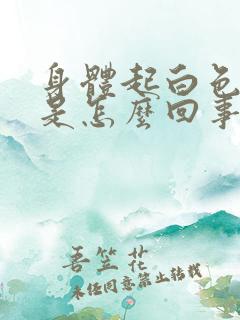 身體起白色
是怎麼回事
吾笠花
未经同意禁止转载